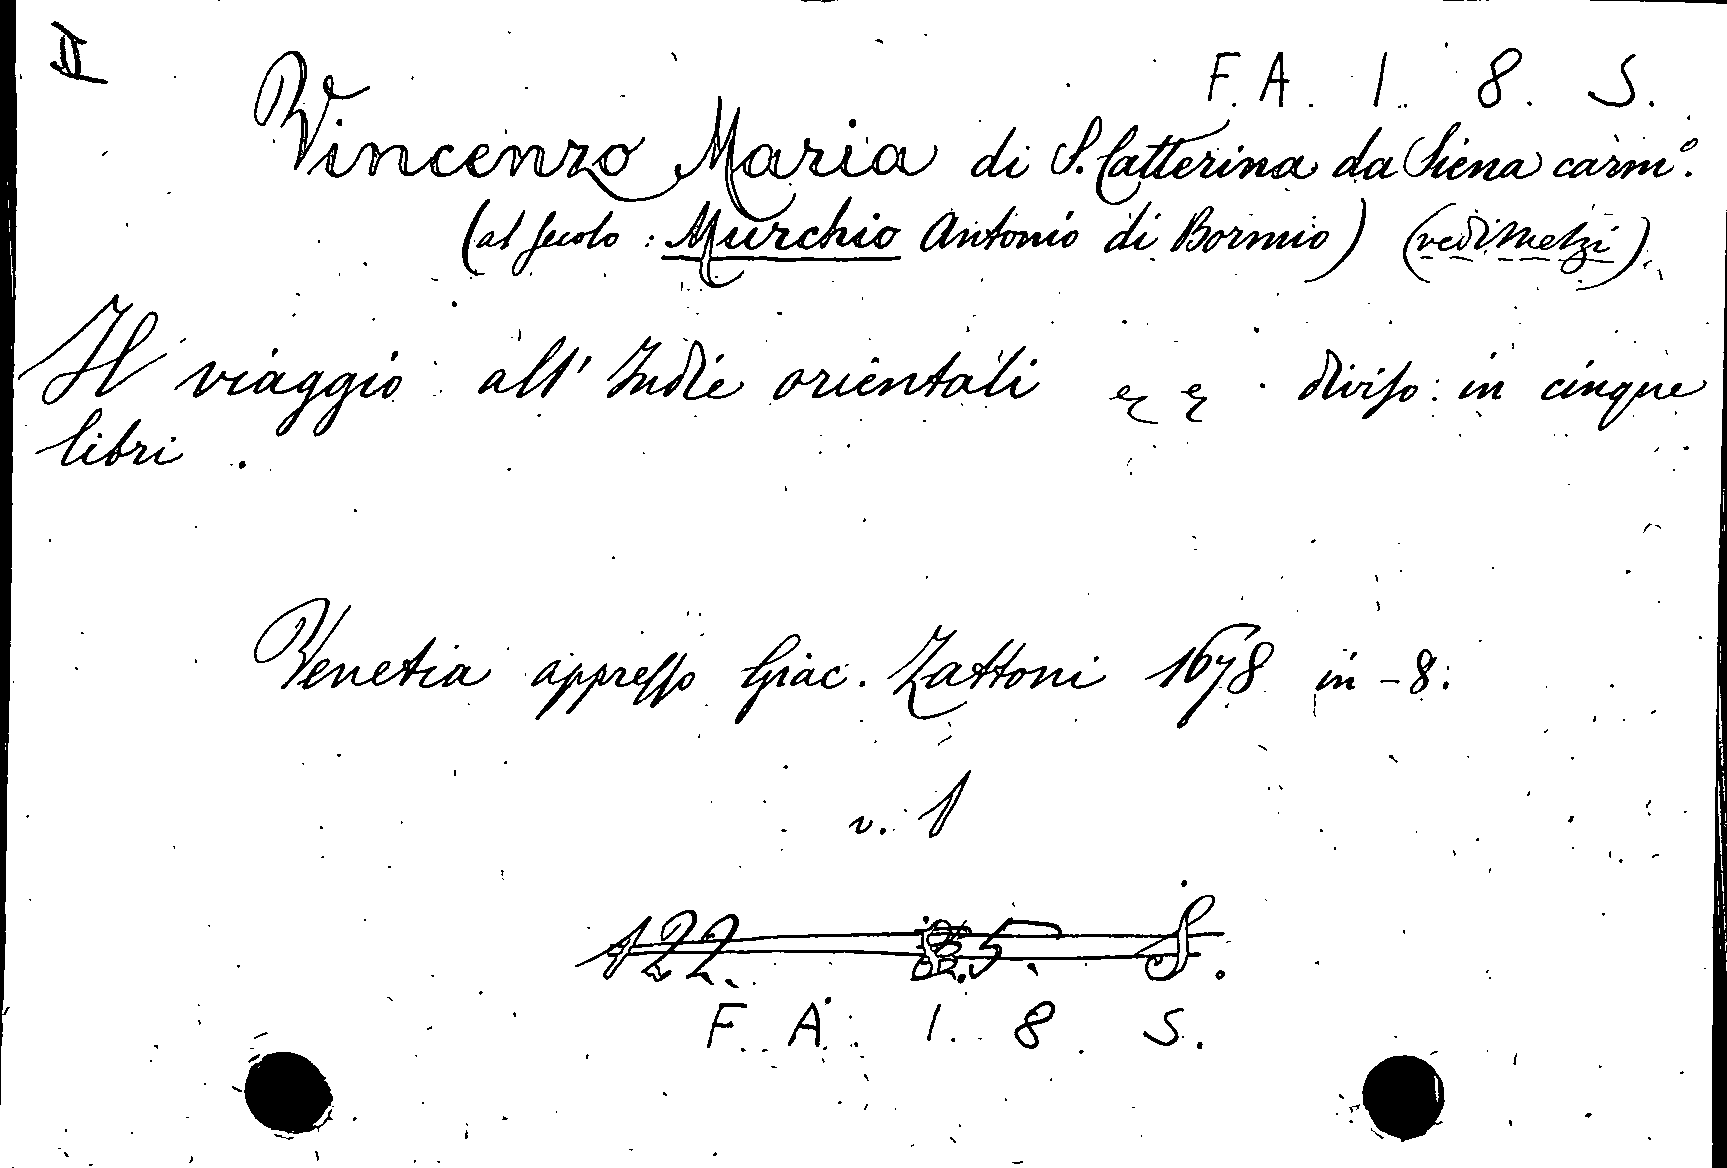 II
F. A. 1. 8. S.
Vincenzo Maria di S. Catterina da Siena carm.º
(al secolo: Murchio Antonio di Bormio) (vedi Melzi).
Il viaggio all' Indie orientali &c &c. diviso: in cinque
libri.
Venetia appresso Giac. Zattoni 1678 in-8:
v. 1
122. 5. S.
F. A. 1. 8. S.